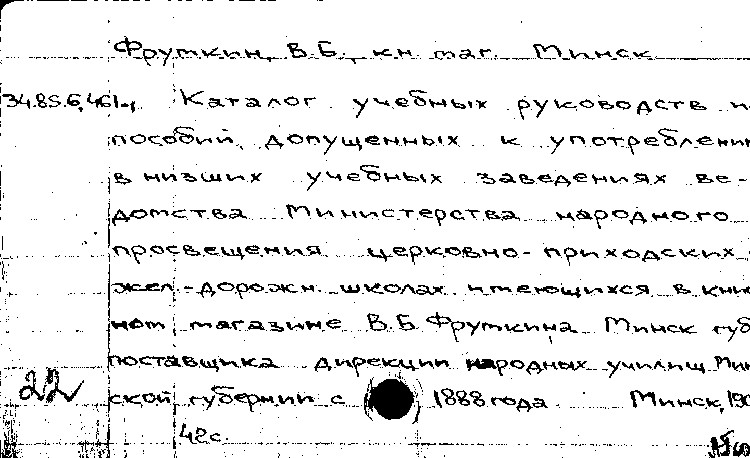 Фрумкин, В.Б., кн. маг. Минск
34.85.6.461 Каталог учебных руководств и
пособий, допущенных к употреблению
в низших учебных заведениях ве-
домства Министерства народного
просвещения церковно-приходских
жел-дорожн. школах имеющихся в книж
ном магазине В.Б. Фрумкина Минск губ
поставщика дирекции народных училищ Мин
22 ской губернии с 1888 года. Минск, 190
42 с.